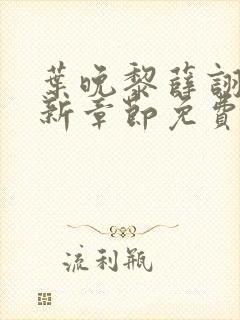 葉晚黎薛詡
新章節免費
流利瓶